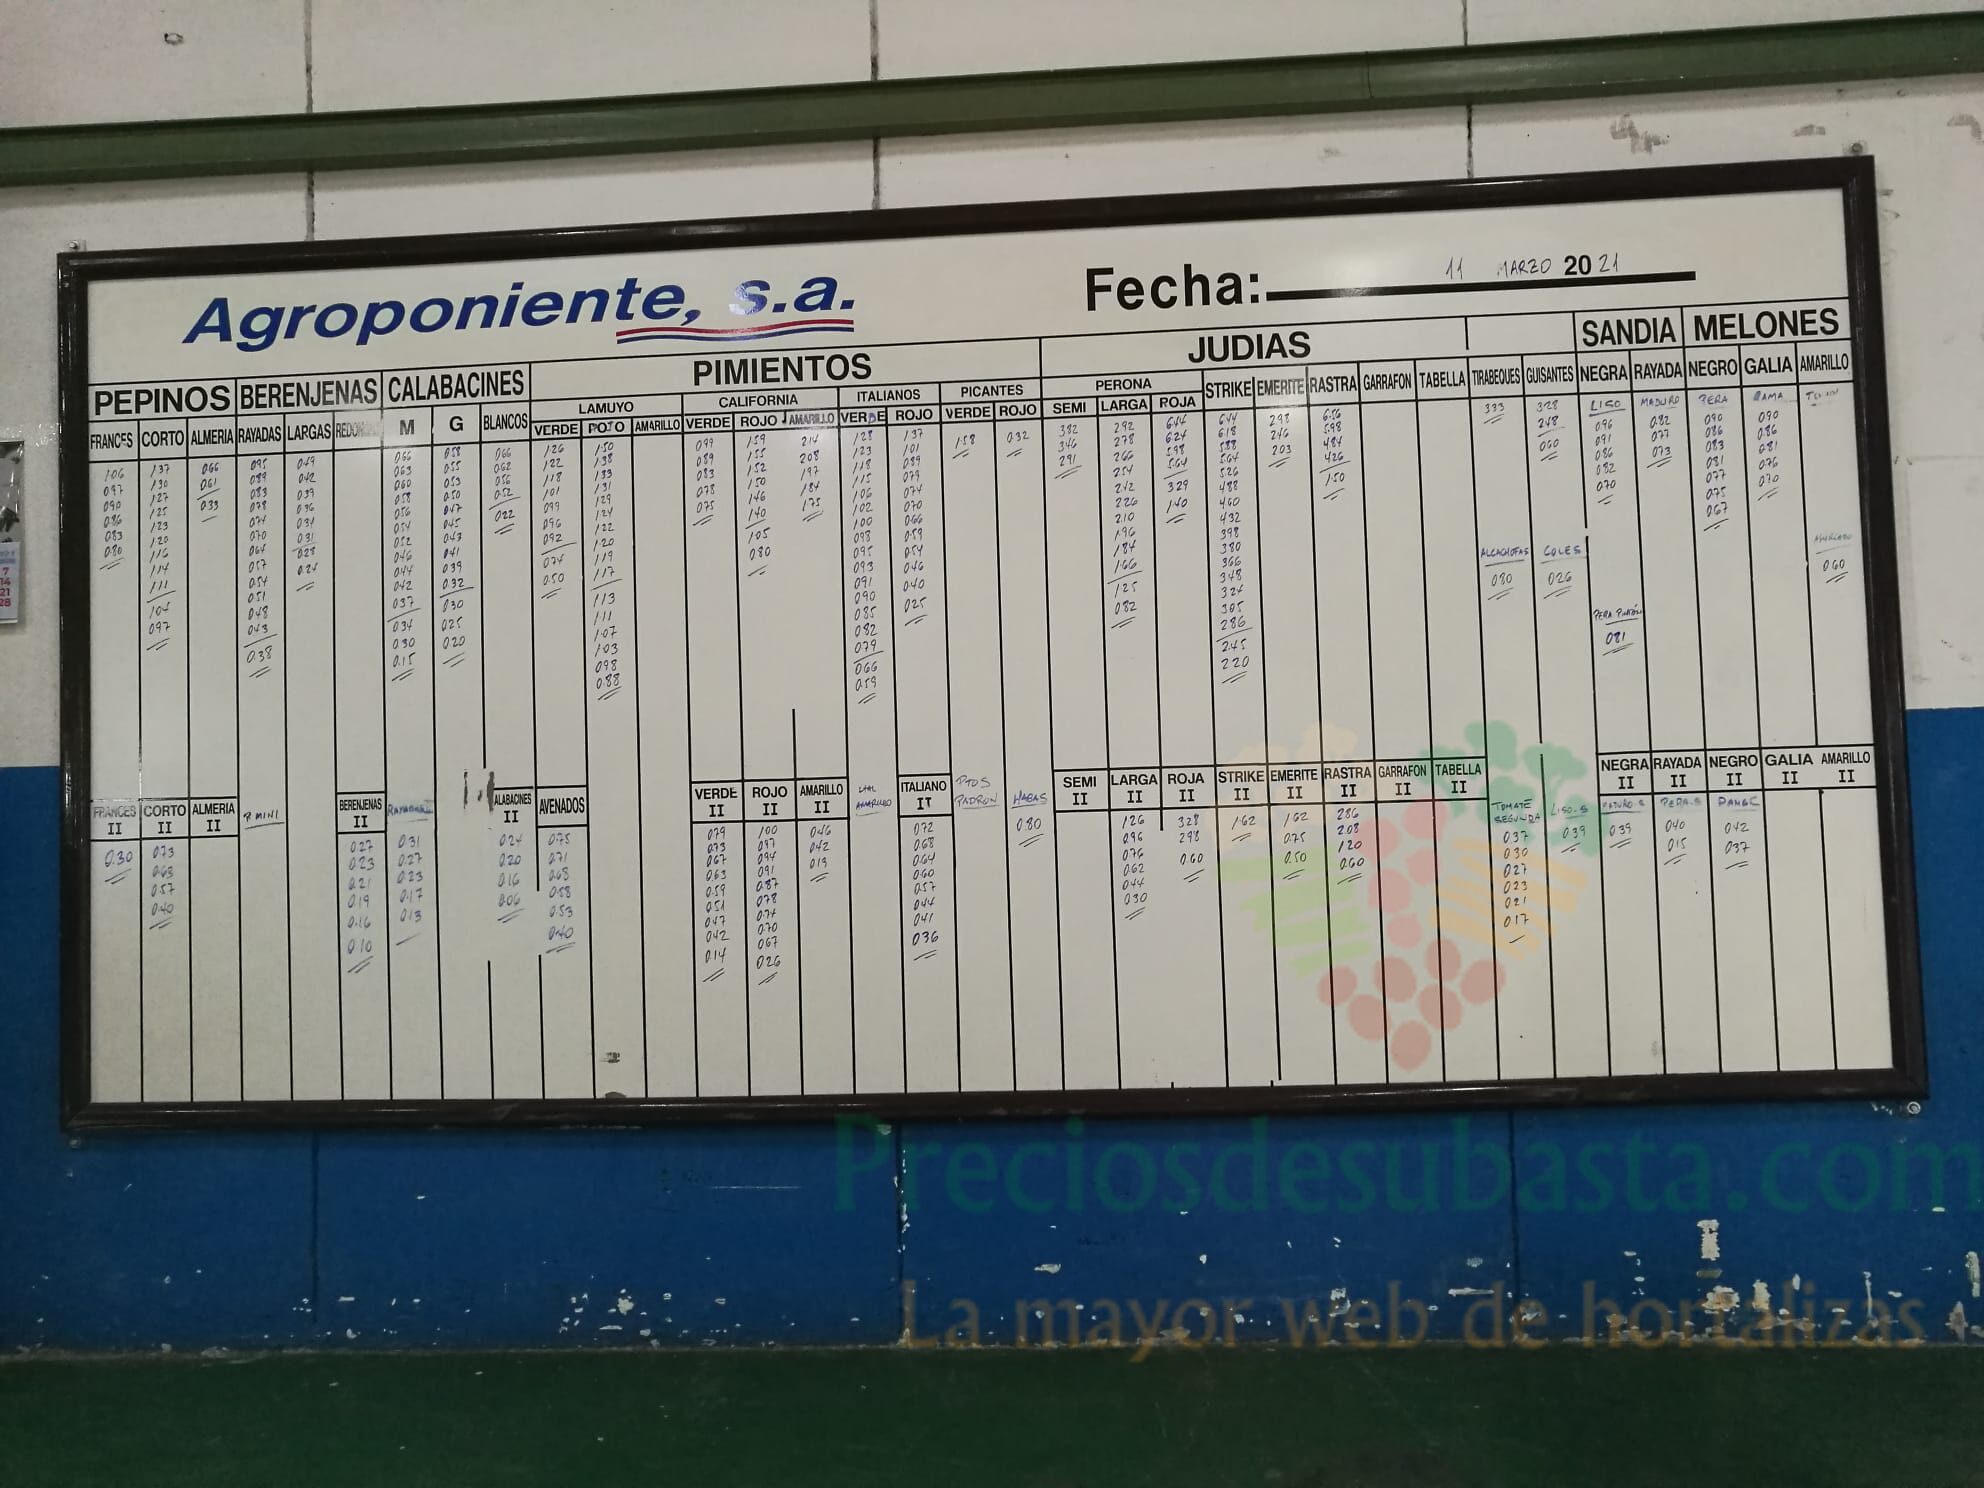 Agroponiente, s.a.
Fecha: 11 MARZO 2021
PEPINOS BERENJENAS CALABACINES PIMIENTOS JUDIAS SANDIA MELONES
LAMUYO CALIFORNIA ITALIANOS PICANTES PERONA STRIKE EMERITE RASTRA GARRAFON TABELLA TIRABEQUES GUISANTES NEGRA RAYADA NEGRO GALIA AMARILLO
FRANCES CORTO ALMERIA RAYADAS LARGAS M G BLANCOS VERDE ROJO AMARILLO VERDE ROJO AMARILLO VERDE ROJO VERDE ROJO SEMI LARGA ROJA
LISO MADURO PERA RAMA
106 097 090 086 083 080
137 130 127 125 123 120 116 114 111 104 097
066 061 033
095 089 083 078 074 070 064 057 054 051 048 043 038
049 042 039 036 034 031 028 024
066 063 060 058 056 054 052 046 044 042 037 034 030 015
058 055 053 050 047 045 043 041 039 032 030 025 020
066 062 056 052 022
126 122 118 101 099 096 092 074 050
150 138 133 131 129 124 122 120 119 117 113 111 107 103 098 088
099 089 083 078 075
159 155 152 150 146 140 105 080
214 208 197 184 175
128 123 118 115 106 102 100 098 095 093 091 090 085 082 079 066 059
137 101 089 079 074 070 066 059 054 046 040 025
158
032
382 346 291
292 278 266 254 242 226 210 196 184 166 125 082
644 624 598 564 329 140
644 618 588 564 526 488 460 432 398 380 366 348 324 305 286 245 220
298 246 203
656 598 484 426 150
333
328 248 060
096 091 086 082 070
082 077 073
090 086 083 081 077 075 067
090 086 081 076 070
ALCACHOFAS COLES
080 026
060
PERA PINTÓN
081
FRANCES II CORTO II ALMERIA II P MINI BERENJENAS II ALABACINES II AVENADOS VERDE II ROJO II AMARILLO II ITALIANO II PTOS PADRON HABAS SEMI II LARGA II ROJA II STRIKE II EMERITE II RASTRA II GARRAFON II TABELLA II TOMATE SEGUNDA LISO-S NEGRA II RAYADA II NEGRO II GALIA II AMARILLO II
MADURO-S PERA-S
030
073 063 057 040
027 023 021 019 016 010
031 027 023 017 013
024 020 016 006
075 071 068 058 053 040
079 073 067 063 059 051 047 042 014
100 097 094 091 087 078 074 070 067 026
046 042 019
072 068 064 060 057 044 041 036
080
126 096 076 062 044 030
328 298 060
162
162 075 050
286 208 120 060
037 030 027 023 021 017
039
039
040 015
042 037
7
14
21
28
Preciosdesubasta.com
La mayor web de hortalizas